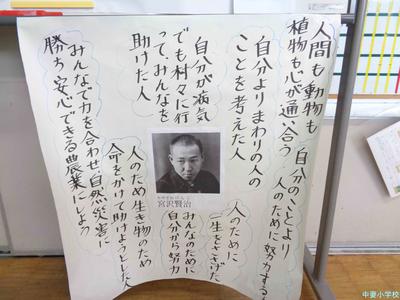 人間も動物も
植物も心が通い合う
自分のことより
人のために努力する
自分よりまわりの人の
ことを考えた人
自分が病気
でも村々に行
ってみんなを
助けた人
宮沢賢治
人のために
一生をささげた
みんなのために
自分から努力
人のため生き物のため
命をかけて助けようとした人
みんなで力を合わせ自然災害に
勝ち安心できる農業にしよう
中妻小学校